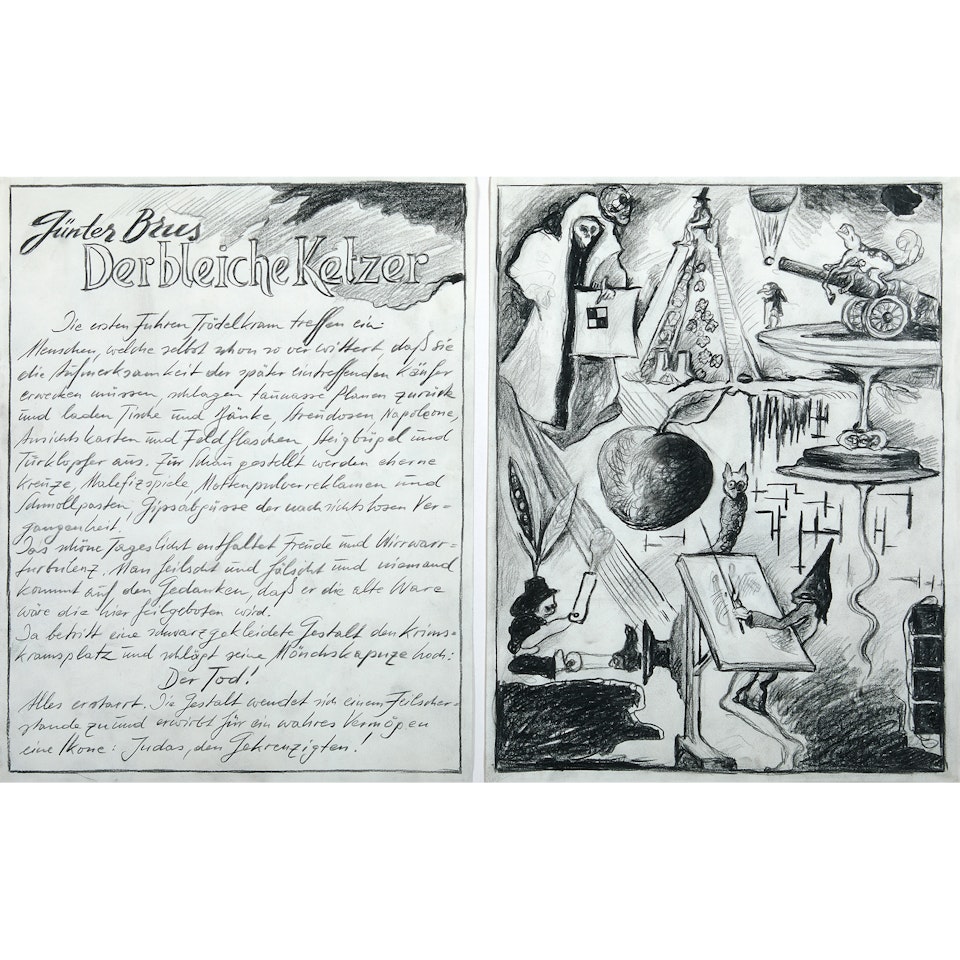 Günter Brus
Der bleiche Ketzer
Die ersten Fuhren Trödelkram treffen ein.
Menschen, welche selbst schon so verwittert, daß sie
die Aufmerksamkeit der später eintreffenden Käufer
erwecken müssen, schlagen taunasse Planen zurück
und laden Tische und Bänke, Streudosen, Napoleone,
Ansichtskarten und Feldflaschen, Steigbügel und
Türklopfer aus. Zur Schau gestellt werden eherne
Kreuze, Malefizspiele, Mottenpulverreklamen und
Schmollpasten, Gipsabgüsse der nachsichtslosen Ver-
gangenheit!
Das schöne Tageslicht entfaltet Freude und Wirrwarr-
turbulenz. Man feilscht und fälscht und niemand
kommt auf den Gedanken, daß er die alte Ware
wäre die hier feilgeboten wird!
Da betritt eine schwarzgekleidete Gestalt den Krims-
kramsplatz und schlägt seine Mönchskapuze hoch:
Der Tod!
Alles erstarrt. Die Gestalt wendet sich einem Feilscher-
stande zu und erwirbt für ein wahres Vermögen
eine Ikone: Judas, den Gekreuzigten!